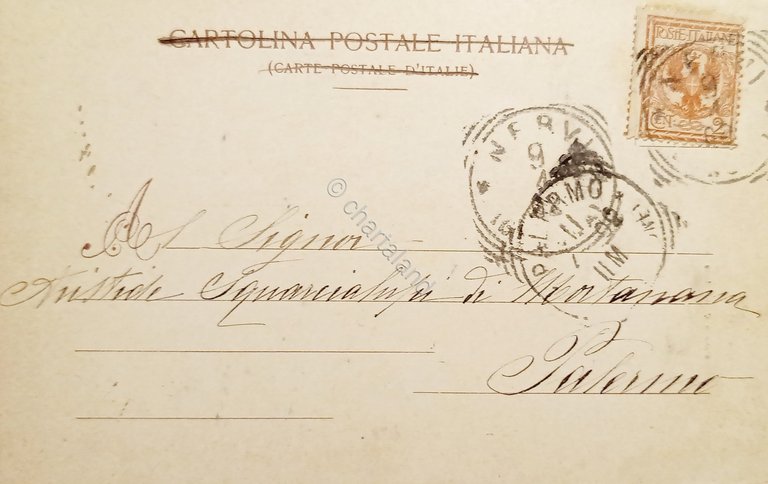 CARTOLINA POSTALE ITALIANA
(CARTE POSTALE D'ITALIE)
POSTE ITALIANE
CENT. 2
NERVI
9
PALERMO
11
© chartaland
Al Signor
Aristide Squarcialupi di Montanara
Palermo